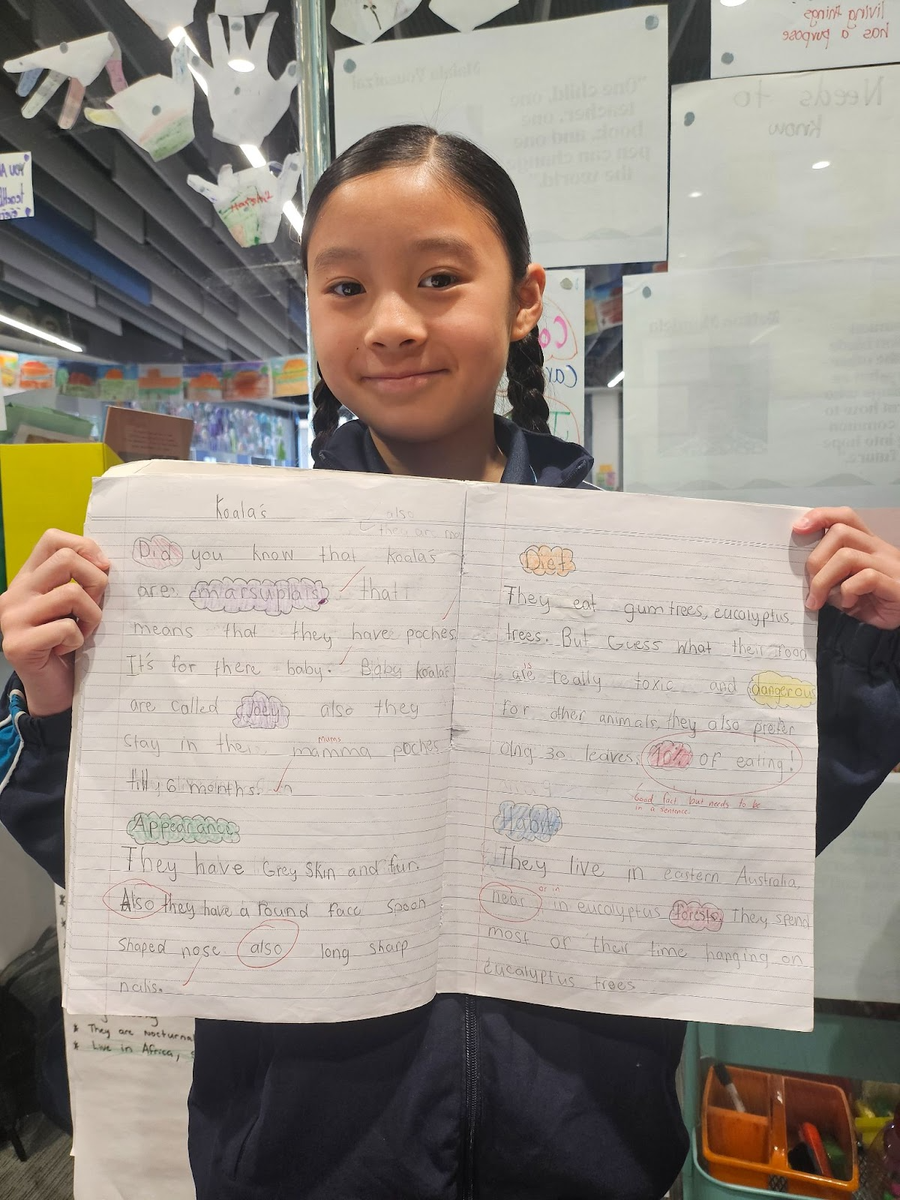 Koala's
also
they are
Did you know that koala's
are marsuplais that
means that they have poches
It's for there baby. Baby koala's
are called Joey also they
mums
stay in the mamma poches
till 6 months.
Appearance
They have Grey skin and fur.
Also they have a round face spoon
shaped nose also long sharp
nails.
Diet
They eat gumtrees, eucalyptus
trees. But Guess what their food
is
are really toxic and dangerous
for other animals, they also prefer
30 leaves. 10% of eating!
Good fact but needs to be
in a sentence.
They live in eastern Australia,
or in
near in eucalyptus forests. They spend
most of their time hanging on
eucalyptus trees
living things
has a purpose
Needs to
know
"One child, one
teacher, one
book, and one
pen can change
the world."
* They are nocturna
* Live in Africa,